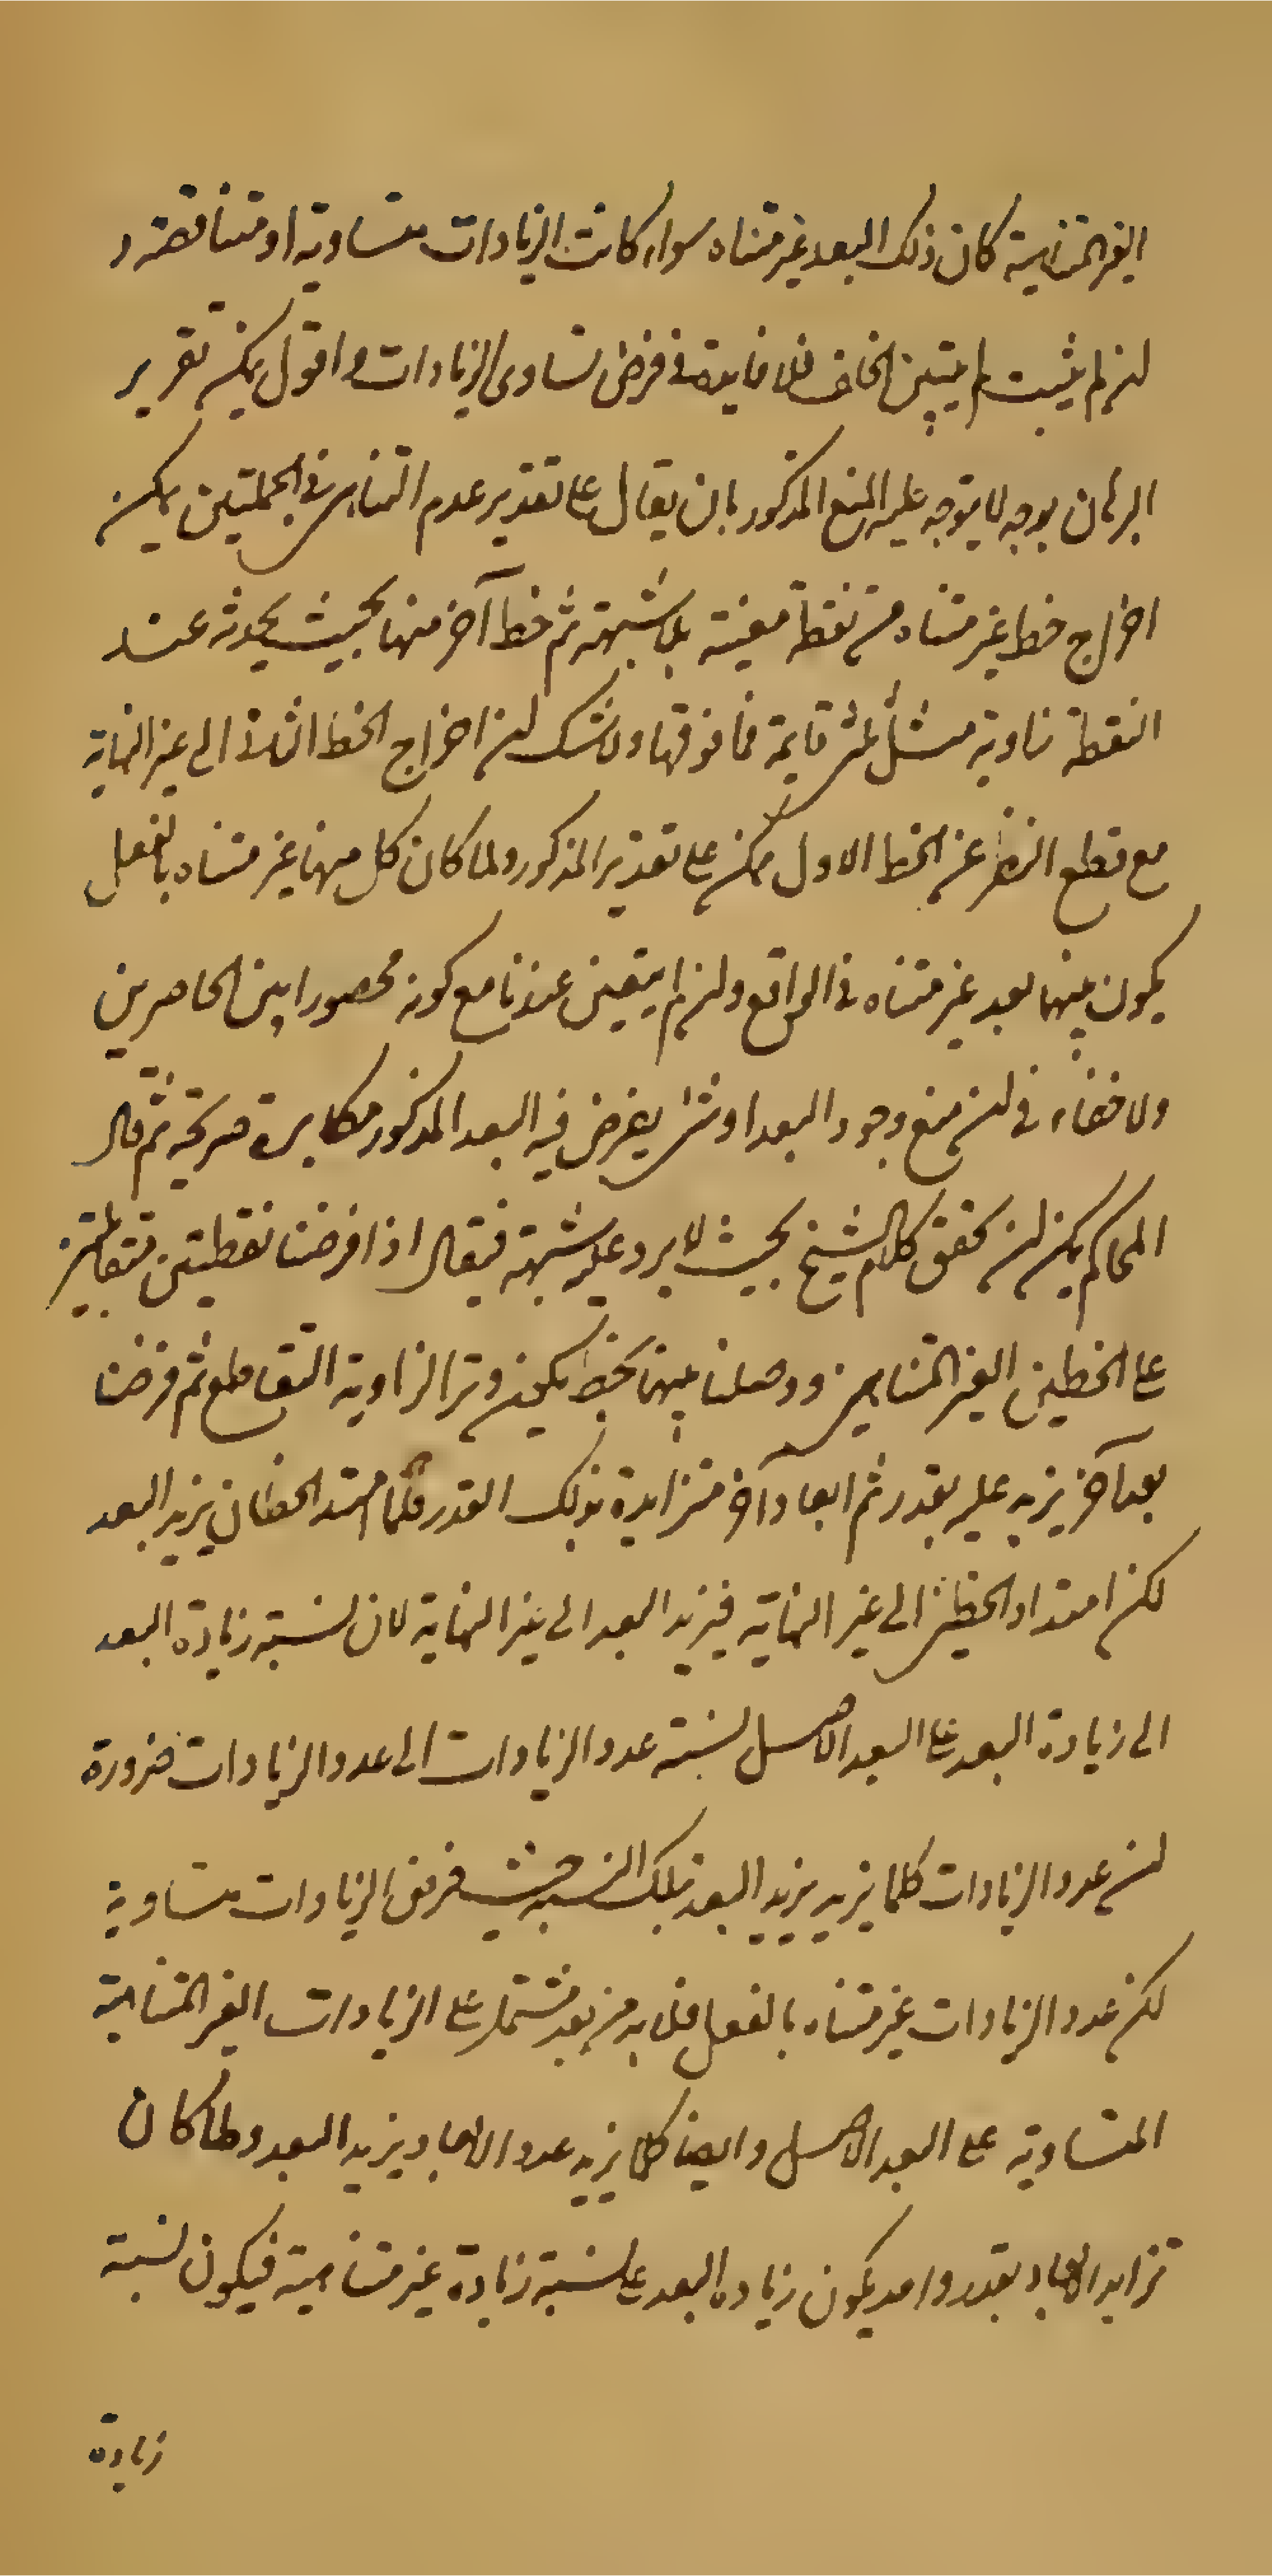 الغير المتناهية كان ذلك البعد غير متناه سواء كانت الزيادات متساوية او متناقصة و
ان لم يثبت لم يتبين الخلف فلا فايدة في فرض تساوى الزيادات و اقول يمكن تقرير
البرهان بوجه لا يتوجه عليه المنع المذكور بان يقال على تقدير عدم التناهى في الجملتين يمكن
اخراج خط غير متناه من نقطة معينة بلا شبهة ثم خط آخر منها بحيث يحدث عند
النقطة زاوية مثل ثلثى قايمة فما فوقها ولا شك ان اخراج الخط الثانى الى غير النهاية
مع قطع النظر عن الخط الاول ممكن على تقدير المذكور ولما كان كل منهما غير متناه بالفعل
يكون بينهما بعد غير متناه في الواقع وان لم يتعين عندنا مع كونه محصورا بين الحاصرين
ولا خفاء في ان منع وجود البعد او شئ يفرض فيه البعد المذكور مكابرة صريحة ثم قال
المحاكم يمكن ان يحقق كلام الشيخ بحيث لا يرد عليه شبهة فيقال اذا فرضنا نقطتين متقابلتين
على الخطين الغير المتناهيين ووصلنا بينهما بخط يكون وترا لزاوية التقاطع ثم فرضنا
بعدا آخر يزيد عليه بقدر ثم ابعادا آخر متزايدة بذلك القدر فكلما امتد الخطان يزيد البعد
لكن امتداد الخطين الى غير النهاية فيزيد البعد الى غير النهاية لان نسبة زيادة البعد
الى زيادة البعد على البعد الاصل نسبة عدد الزيادات الى عدد الزيادات ضرورة
ان عدد الزيادات كلما يزيد يزيد البعد بتلك النسبة حيث فرض الزيادات متساوية
لكن عدد الزيادات غير متناه بالفعل فلا بد من بعد مشتمل على الزيادات الغير المتناهية
المتساوية على البعد الاصل وايضا كلما يزيد عدد الابعاد يزيد البعد ولما كان
تزايد الابعاد بقدر واحد يكون زيادة البعد على نسبة زيادة غير متناهية فيكون نسبة
زيادة